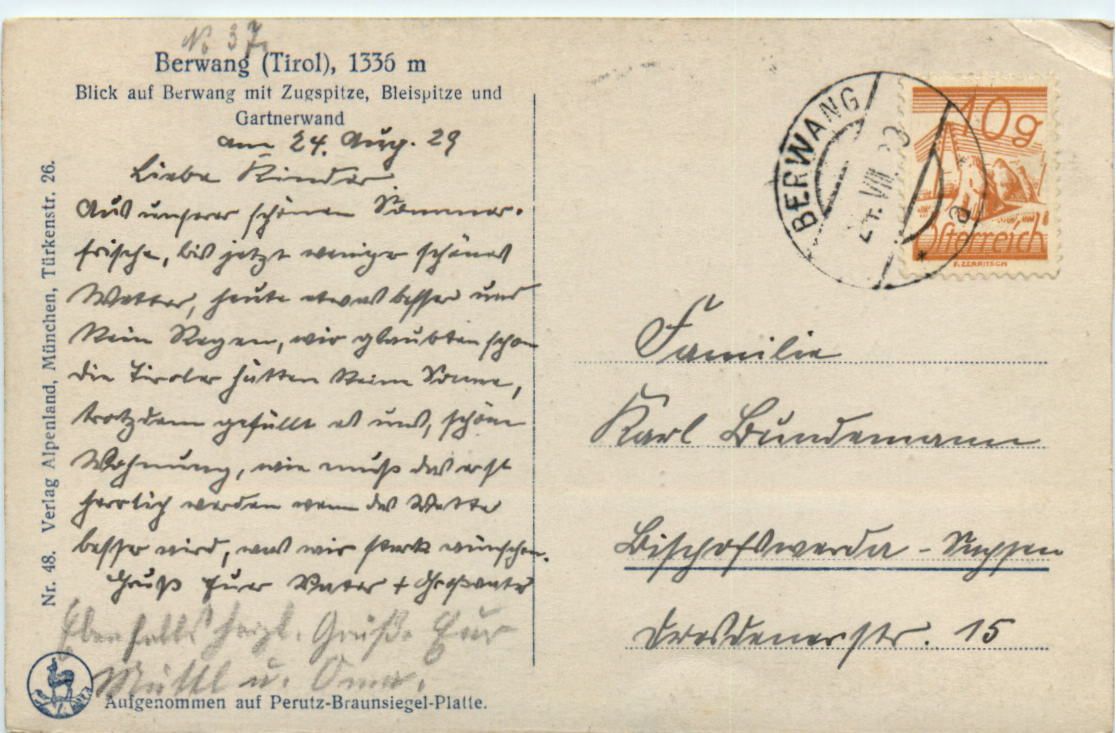 No 37.
Berwang (Tirol), 1336 m
Blick auf Berwang mit Zugspitze, Bleispitze und
Gartnerwand
am 24. Aug. 29
Liebe Kinder
Aus unserer schönen Sommer-
frische, bis jetzt weniger schönes
Wetter, heute etwas besser und
kein Regen, wir glaubten schon
die Tiroler hätten keine Sonne,
trotzdem gefällt es uns, schöne
Wohnung, wie muß das erst
herrlich werden wenn das Wetter
besser wird, was wir stark wünschen.
Gruß Euer Vater + Großvater
Ebenfalls herzl. Grüße Eure
Muttl u. Oma.
Aufgenommen auf Perutz-Braunsiegel-Platte.
Nr. 48. Verlag Alpenland, München, Türkenstr. 26.
BERWANG
24. VIII.
a
10g
Österreich
F. ZERRITSCH
Familie
Karl Bundemann
Bischofswerda - Sachsen
Dresdenerstr. 15